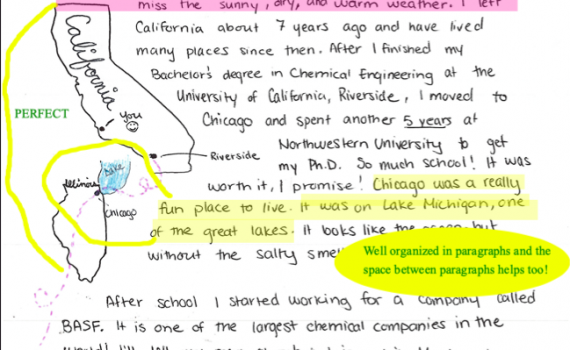 miss the sunny, dry, and warm weather. I left
California about 7 years ago and have lived
many places since then. After I finished my
Bachelor's degree in Chemical Engineering at the
University of California, Riverside, I moved to
Chicago and spent another 5 years at
Northwestern University to get
my Ph.D. So much school! It was
worth it, I promise! Chicago was a really
fun place to live. It was on Lake Michigan, one
of the great lakes. It looks like the ocean but
without the salty
After school I started working for a company called
BASF. It is one of the largest chemical companies in the
California
PERFECT
You
Riverside
Illinois
Lake
Chicago
Well organized in paragraphs and the
space between paragraphs helps too!